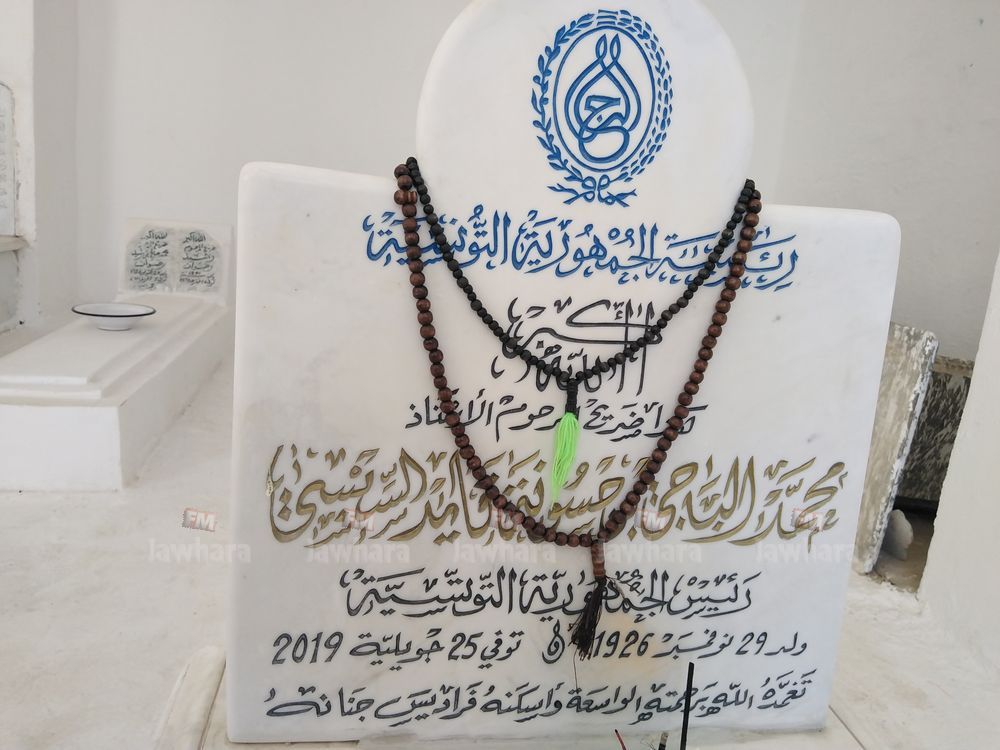 رئاسة الجمهورية التونسية
الله أكبر
هذا ضريح المرحوم الأستاذ
محمد الباجي حسونة قايد السبسي
رَئيسُ الجُمهُوريّة التّونسيّة
ولد 29 نوفمبر 1926 توفي 25 جويلية 2019
تغمّدهُ اللّه برحمته الواسعة وأسكنهُ فراديس جنانهُ
FM FM FM FM FM
Jawhara Jawhara Jawhara Jawhara Jawhara